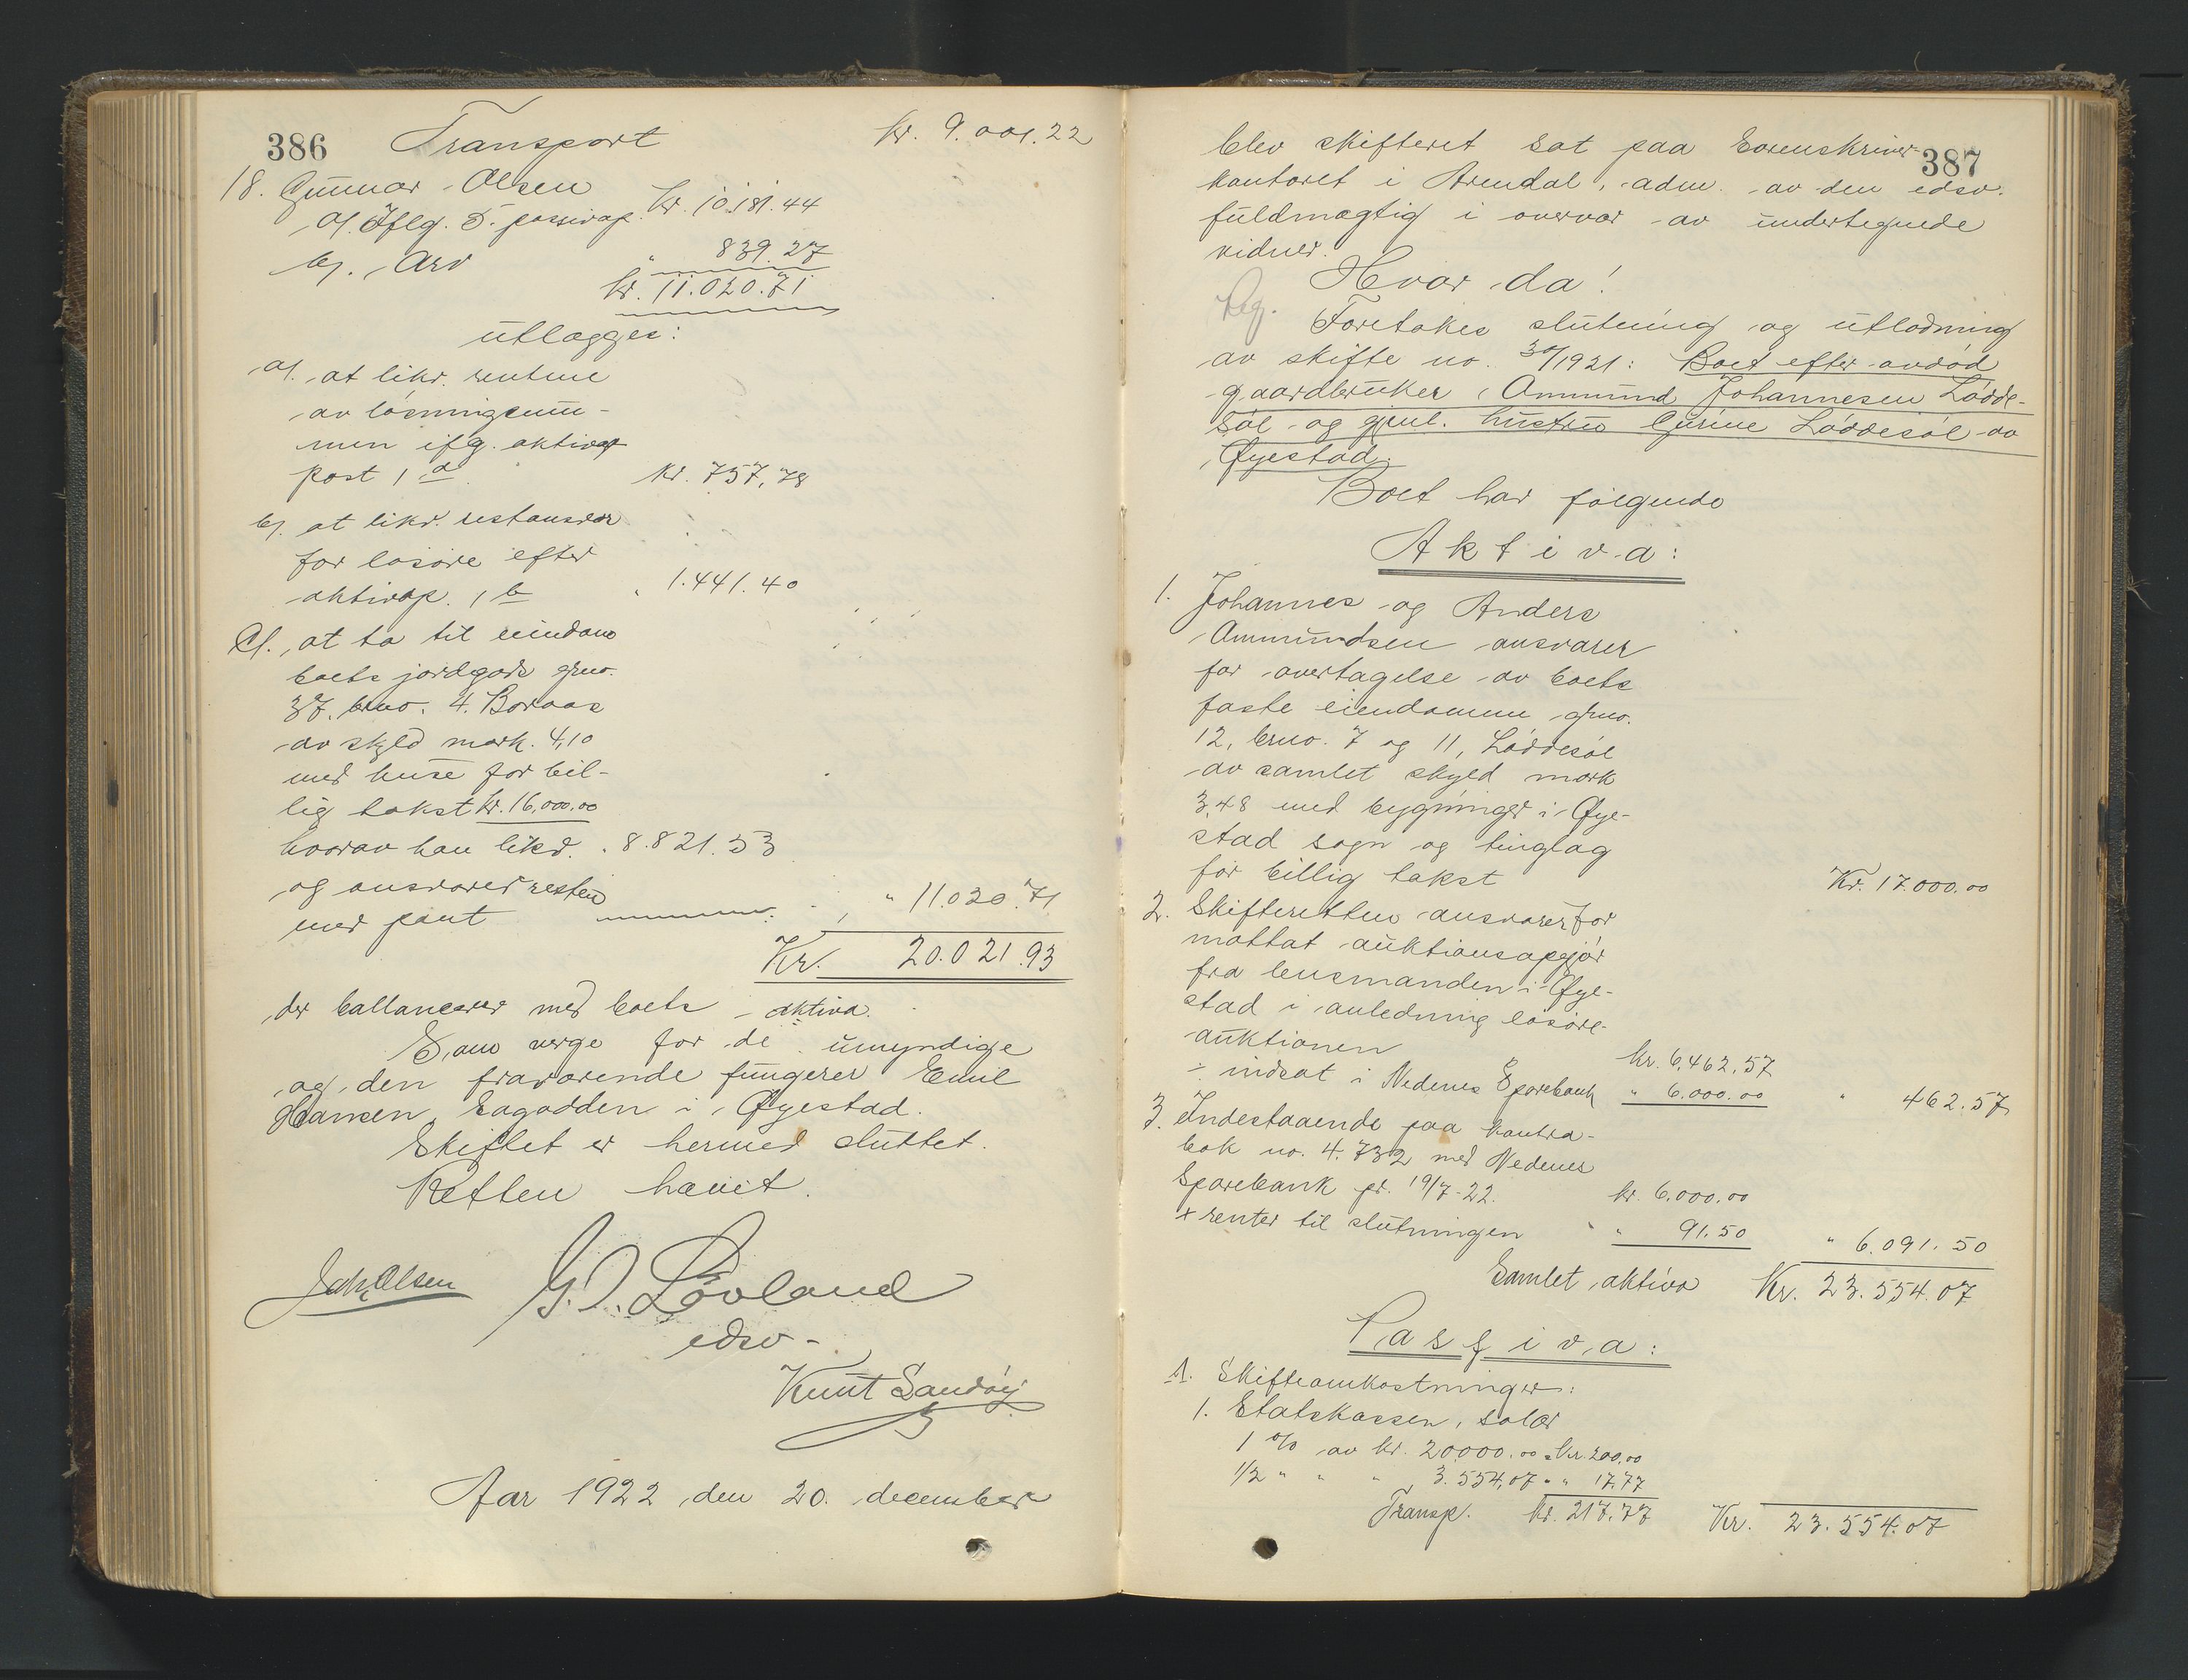 386 Transport kr. 9.001.22
18. Gunnar Olsen
a/. Iflg. 5. passivap. kr. 10.181.44
b/. Arv " 839.27
kr. 11.020.71
utlægges:
a/. at likv. rentene
av løsningssum-
men ifg. aktivap
post 1 a kr. 757,78
b/. at likv. restansvar
for løsøre efter
aktivap. 1 b " 1.441.40
c/. at ta til eiendom
boets jordgods gno.
37. bno. 4. Boraas
av skyld mark. 4,10
med huse for bil-
lig takst kr. 16.000.00
hvorav han likv. " 8.821.53
og ansvarer resten
med pant " 11.020.71
Kr. 20.021.93
der ballancerer med boets aktiva.
Som verge for de umyndige
og den fraværende fungerer Emil
Hansen, Lagodden i Øyestad.
Skiftet er hermed sluttet.
Retten hævet.
Joh. Olsen G. O. Løvland
edsv-
Knut Sandøy
Aar 1922 den 20. december
387
blev skifteret sat paa sorenskriver-
kontoret i Arendal, adm. av den edsv.
fuldmægtig i overvær av undertegnede
vidner.
Hvor da!
Foretokes slutning og utlodning
av skifte no. 30/1921: Boet efter avdød
gaardbruker Ommund Johannesen Lødde-
søl og gjenl. hustru Gurine Løddesøl av
Øyestad.
Boet har følgende
Aktiva:
1. Johannes og Anders
Ommundsen ansvarer
for overtagelse av boets
faste eiendomme gno.
12, bno. 7 og 11, Løddesøl
av samlet skyld mark
3,48 med bygninger i Øye-
stad sogn og tinglag
for billig takst Kr. 17.000.00
2. Skifteretten ansvarer for
mottat auktionsopgjør
fra lensmanden i Øye-
stad i anledning løsøre-
auktionen kr. 6.462,57
÷ indsat i Nedenes Sparebank " 6.000.00 " 462.57
3. Indestaaende paa kontra-
bok no. 4.732 med Nedenes
Sparebank pr. 19/7-22. kr. 6.000.00
+ renter til slutningen " 91.50 " 6.091.50
Samlet aktiva Kr. 23.554.07
Passiva:
A. Skifteomkostninger:
1. Statskassen, salær
1 % av kr. 20000.00 = kr. 200.00
1/2 " " " 3.554,07 = " 17,77
Transp. kr. 217.77 Kr. 23.554.07